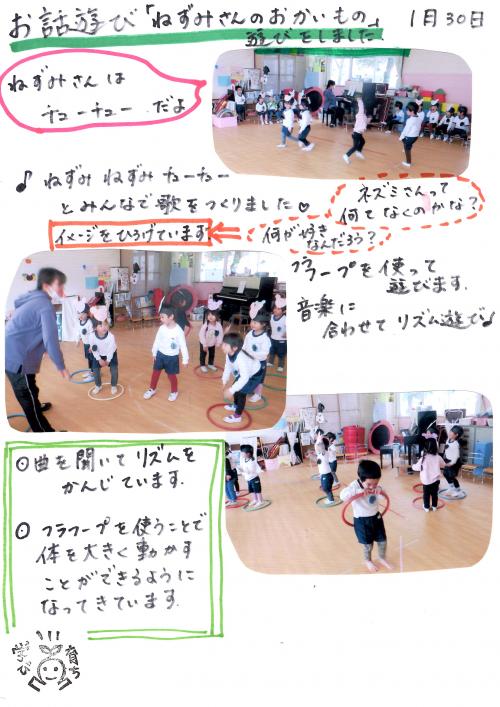 お話遊び「ねずみさんのおかいもの」
遊びをしました
1月30日
ねずみさんは
チューチュー だよ
♪ ねずみ ねずみ チューチュー
とみんなで歌をつくりました♡
ネズミさんって
何てなくのかな?
何が好き
なんだろう?
イメージをひろげています
フラープを使って
遊びます。
音楽に
合わせて リズム遊び♪
○曲を聞いて リズムを
かんじています。
○フラフープを使うことで
体を大きく動かす
ことができるように
なってきています。
学び
育ち